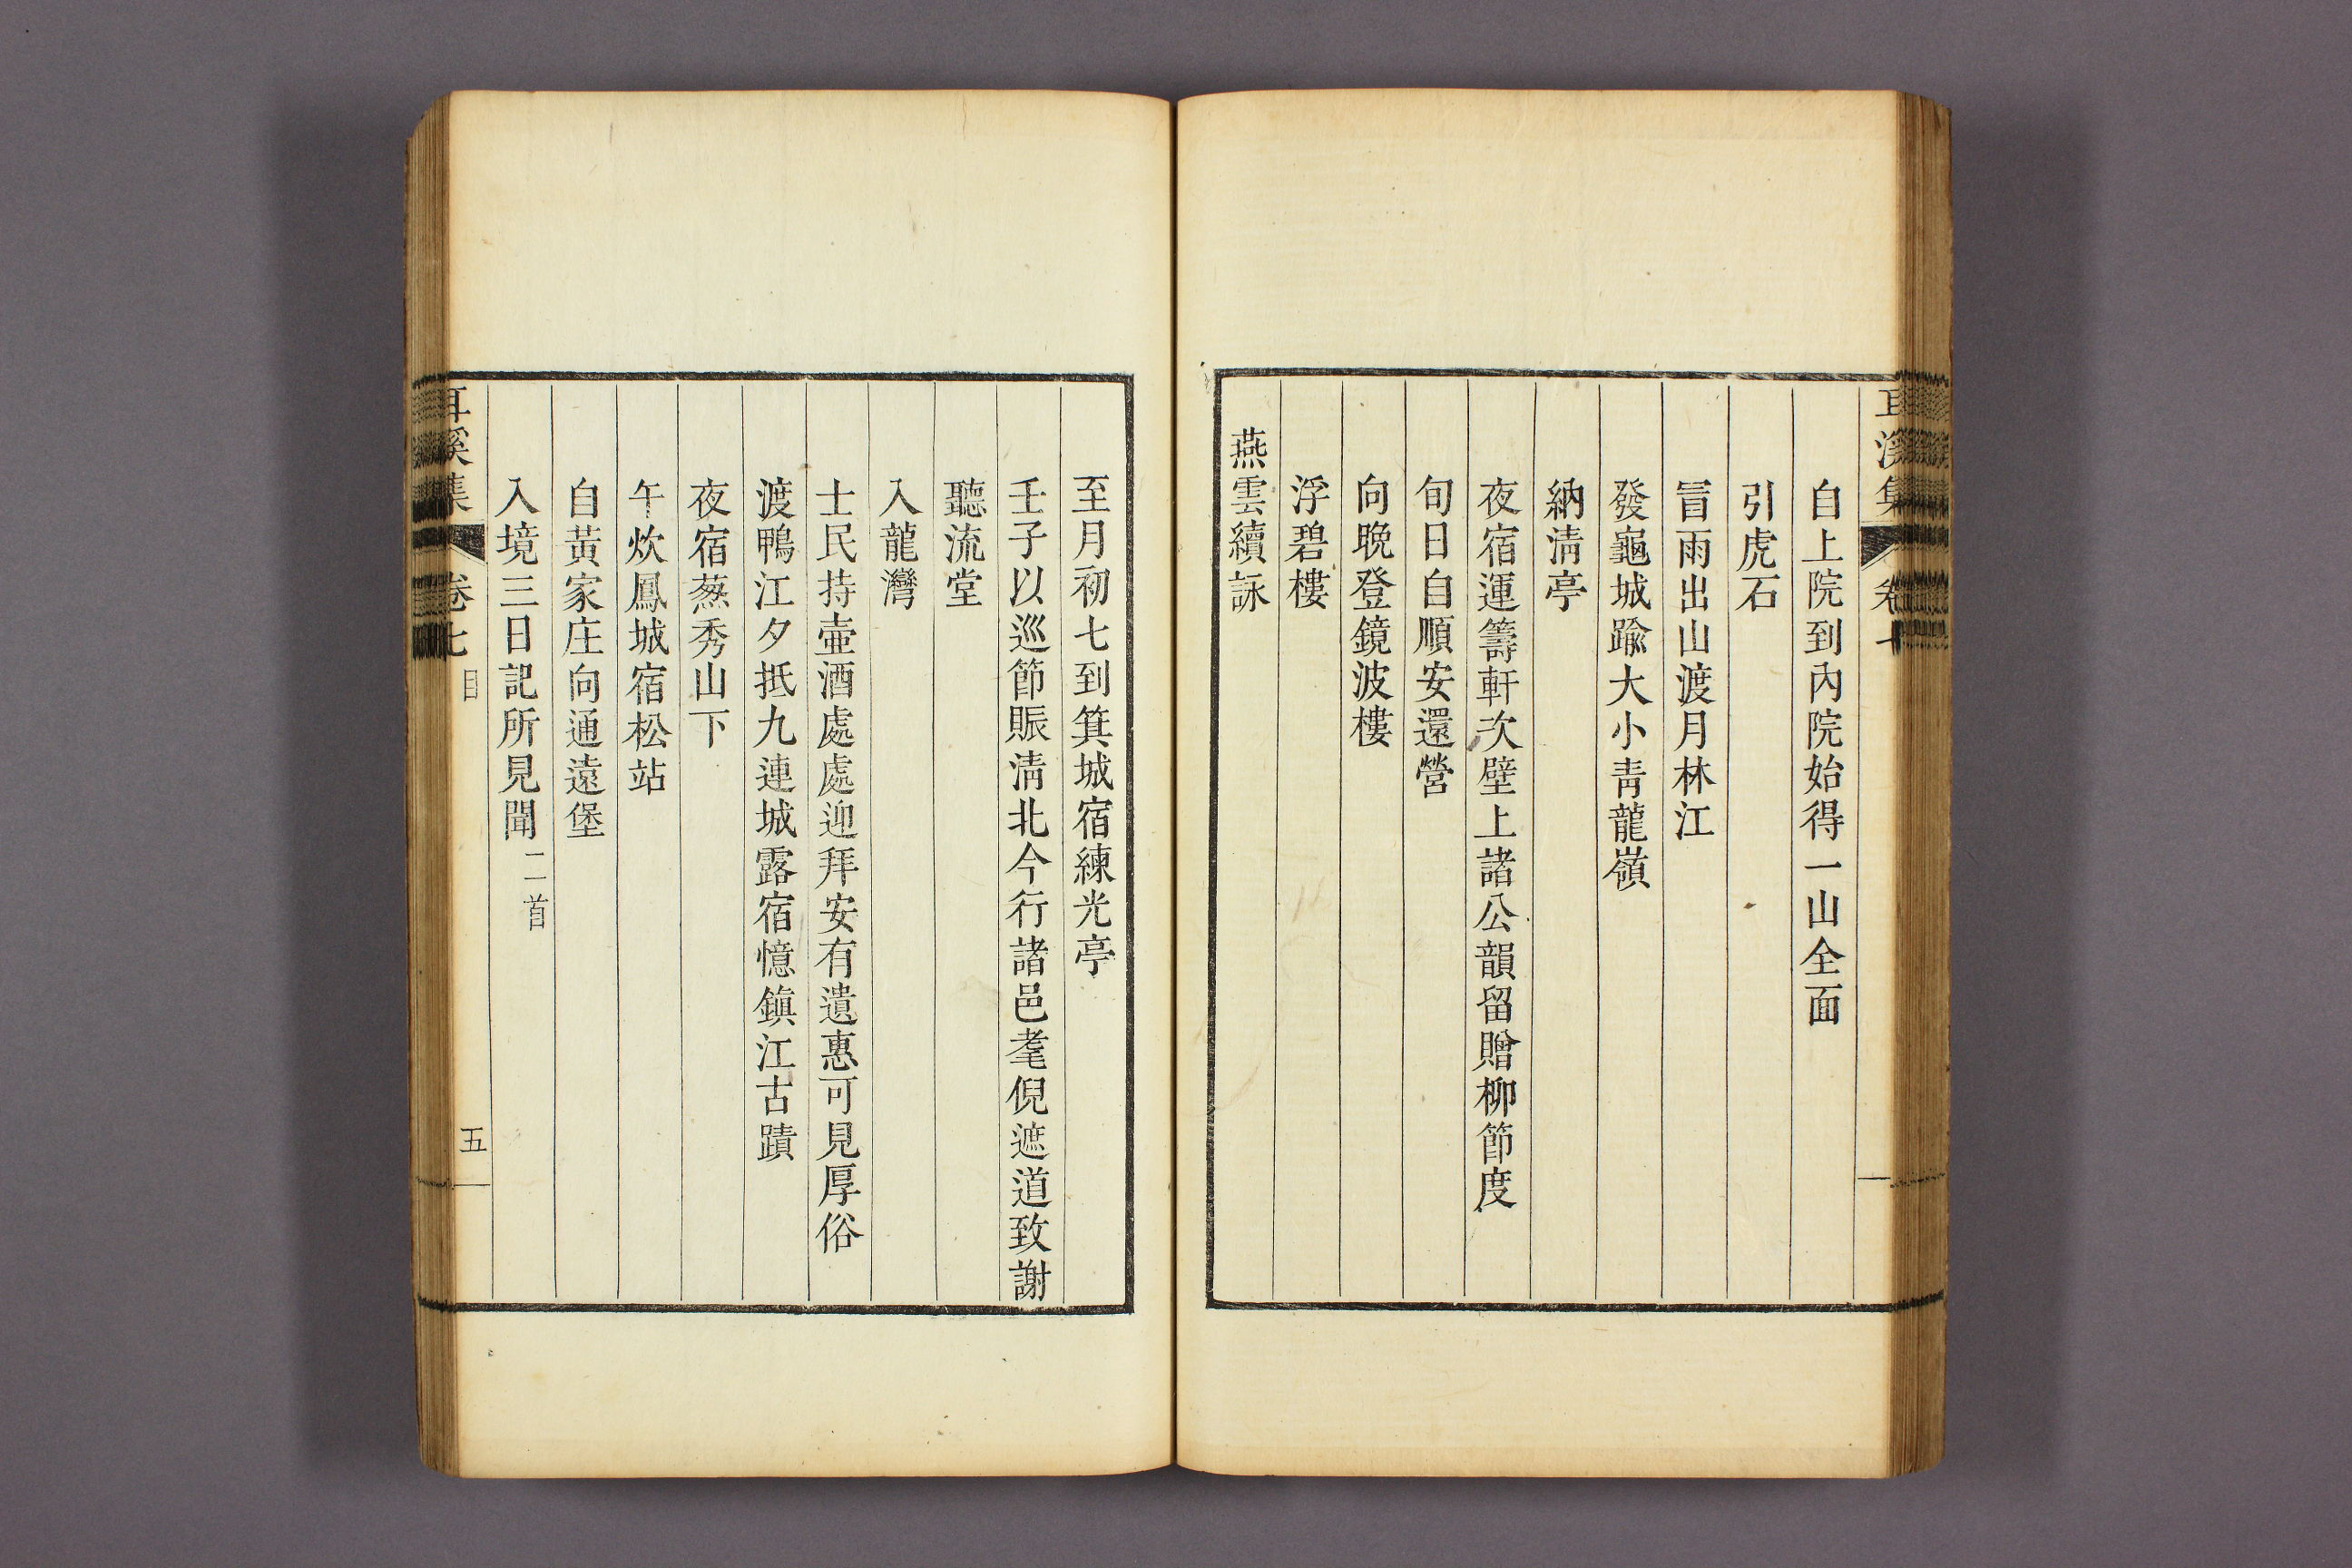 自上院到內院始得一山全面
引虎石
冒雨出山渡月林江
發龜城踰大小靑龍嶺
納淸亭
夜宿運籌軒次壁上諸公韻留贈柳節度
旬日自順安還營
向晩登鏡波樓
浮碧樓
燕雲續詠
至月初七到箕城宿練光亭
壬子以巡節賑淸北今行諸邑耄倪遮道致謝
聽流堂
入龍灣
士民持壷酒處處迎拜安有遺惠可見厚俗
渡鴨江夕抵九連城露宿憶鎭江古蹟
夜宿葱秀山下
午炊鳳城宿松站
自黃家庄向通遠堡
入境三日記所見聞 二首
耳溪集 卷七 目 五